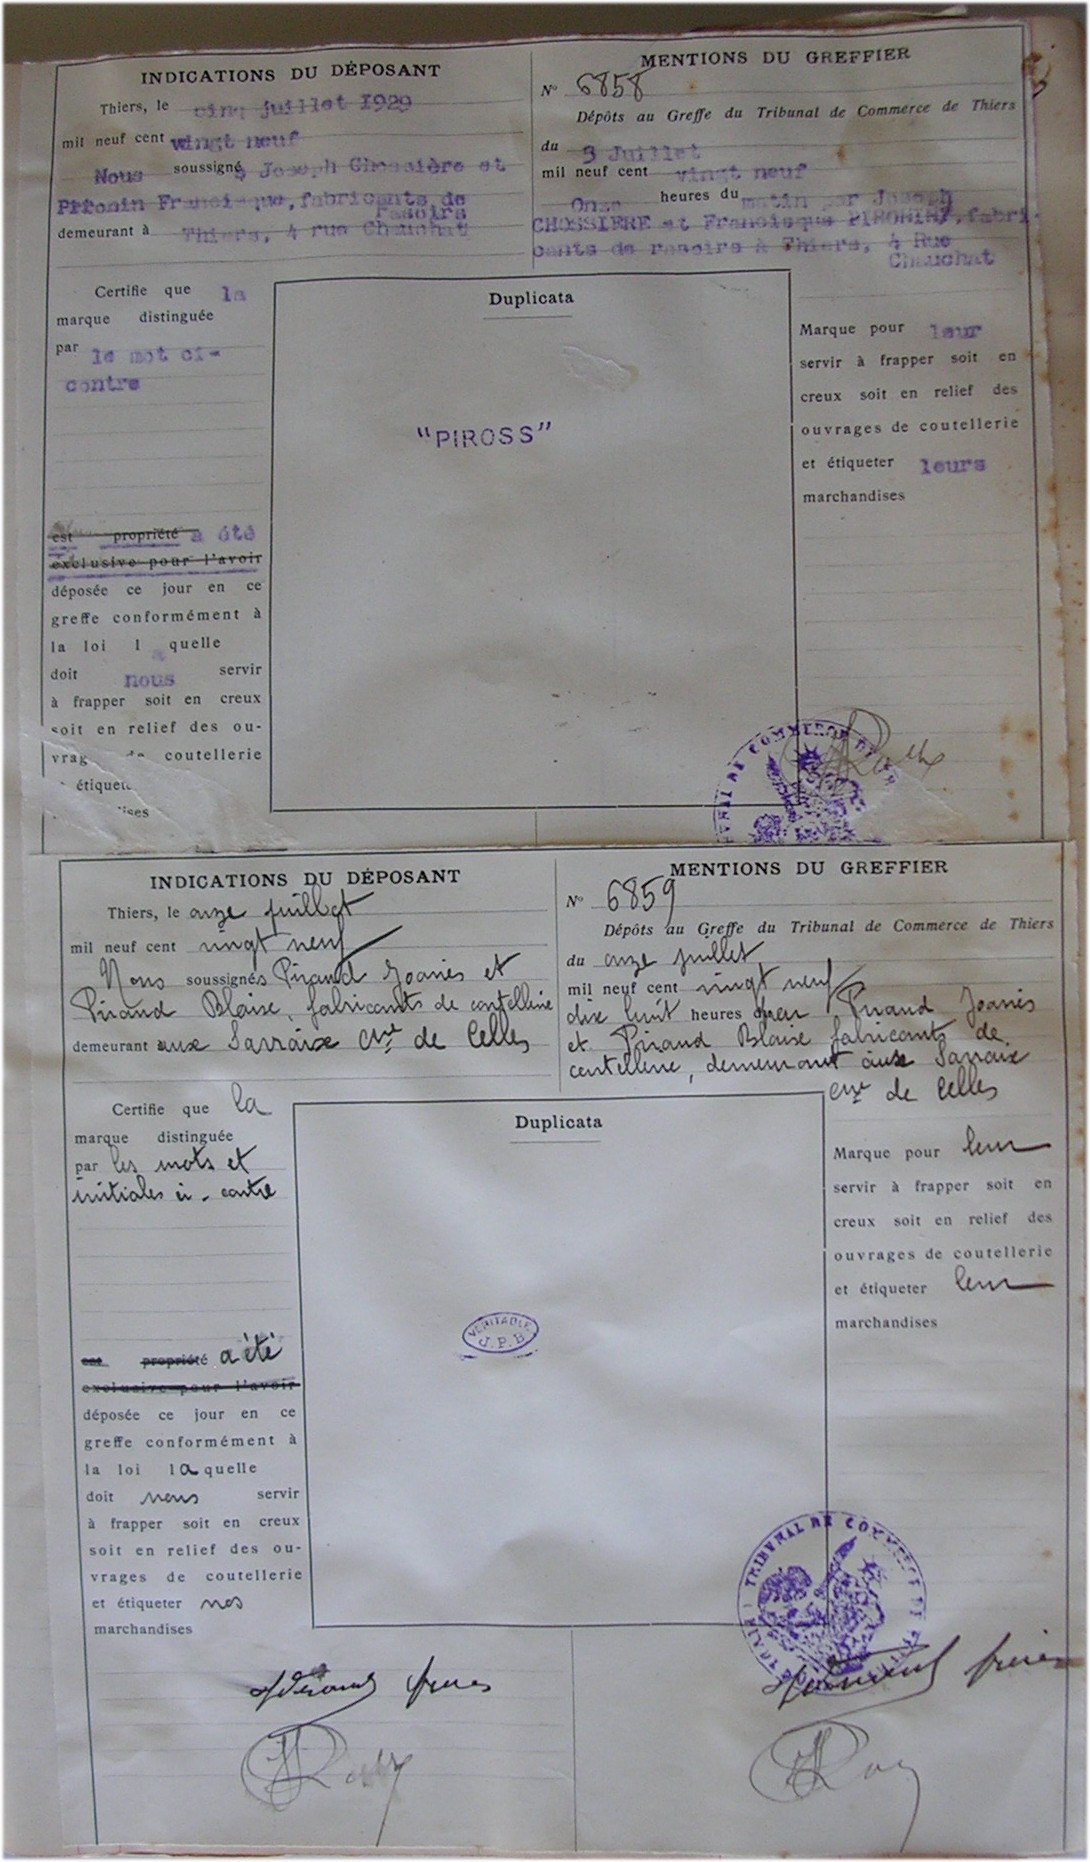 INDICATIONS DU DÉPOSANT
Thiers, le cinq juillet 1929
mil neuf cent vingt neuf
Nous soussignés Joseph Chossière et
Pironin Francisque, fabricants de
rasoirs
demeurant à Thiers, 4 rue Chauchat
MENTIONS DU GREFFIER
N° 6858
Dépôts au Greffe du Tribunal de Commerce de Thiers
du 9 Juillet
mil neuf cent vingt neuf
Onze heures du matin par Joseph
CHOSSIERE et Francisque PIRONIN, fabri-
cants de rasoirs à Thiers, 4 Rue
Chauchat
Certifie que la
marque distinguée
par le mot ci-
contre
est propriété a été
exclusive pour l'avoir
déposée ce jour en ce
greffe conformément à
la loi laquelle
doit nous servir
à frapper soit en creux
soit en relief des ou-
vrag de coutellerie
étiquet
ises
Duplicata
"PIROSS"
Marque pour leur
servir à frapper soit en
creux soit en relief des
ouvrages de coutellerie
et étiqueter leurs
marchandises
TRIBUNAL DE COMMERCE DE
INDICATIONS DU DÉPOSANT
Thiers, le onze juillet
mil neuf cent vingt neuf
Nous soussignés Pirand Joanès et
Pirand Blaise, fabricants de coutellerie
demeurant aux Sarraix cne de Celles
MENTIONS DU GREFFIER
N° 6859
Dépôts au Greffe du Tribunal de Commerce de Thiers
du onze juillet
mil neuf cent vingt neuf
dix huit heures par Pirand Joanès
et Pirand Blaise fabricants de
coutellerie, demeurant aux Sarraix
cne de Celles
Certifie que la
marque distinguée
par les mots et
initiales ci-contre
est propriété a été
exclusive pour l'avoir
déposée ce jour en ce
greffe conformément à
la loi laquelle
doit nous servir
à frapper soit en creux
soit en relief des ou-
vrages de coutellerie
et étiqueter nos
marchandises
Duplicata
VERITABLE
J.P.B
Marque pour leur
servir à frapper soit en
creux soit en relief des
ouvrages de coutellerie
et étiqueter leur
marchandises
TRIBUNAL DE COMMERCE DE
Pirand frères
frères